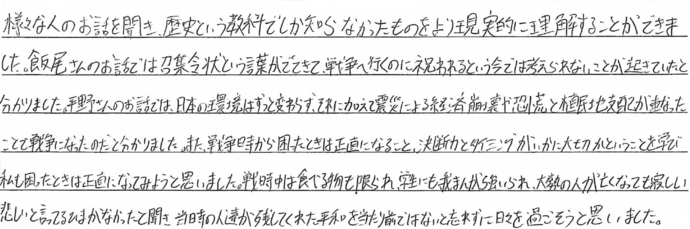 様々な人のお話を聞き、歴史という教科でしか知らなかったものをより現実的に理解することができま
した。飯尾さんのお話では召集令状という言葉がでてきて、戦争へ行くのに祝われるという今では考えられないことが起きていたと
分かりました。平野さんのお話では、日本の環境はずっと変わらず、それに加えて震災による経済崩壊や恐慌と植民地支配が重なった
ことで戦争になったのだと分かりました。また、戦争時から困ったときは正直になること、決断力とタイミングがいかに大切かということを学び
私も困ったときは正直になってみようと思いました。戦時中は食べる物も限られ、学生にも我まんが強いられ、大勢の人が亡くなっても寂しい
悲しいと言ってるひまがなかったと聞き当時の人達が残してくれた平和を当たり前ではないと忘れずに日々を過ごそうと思いました。